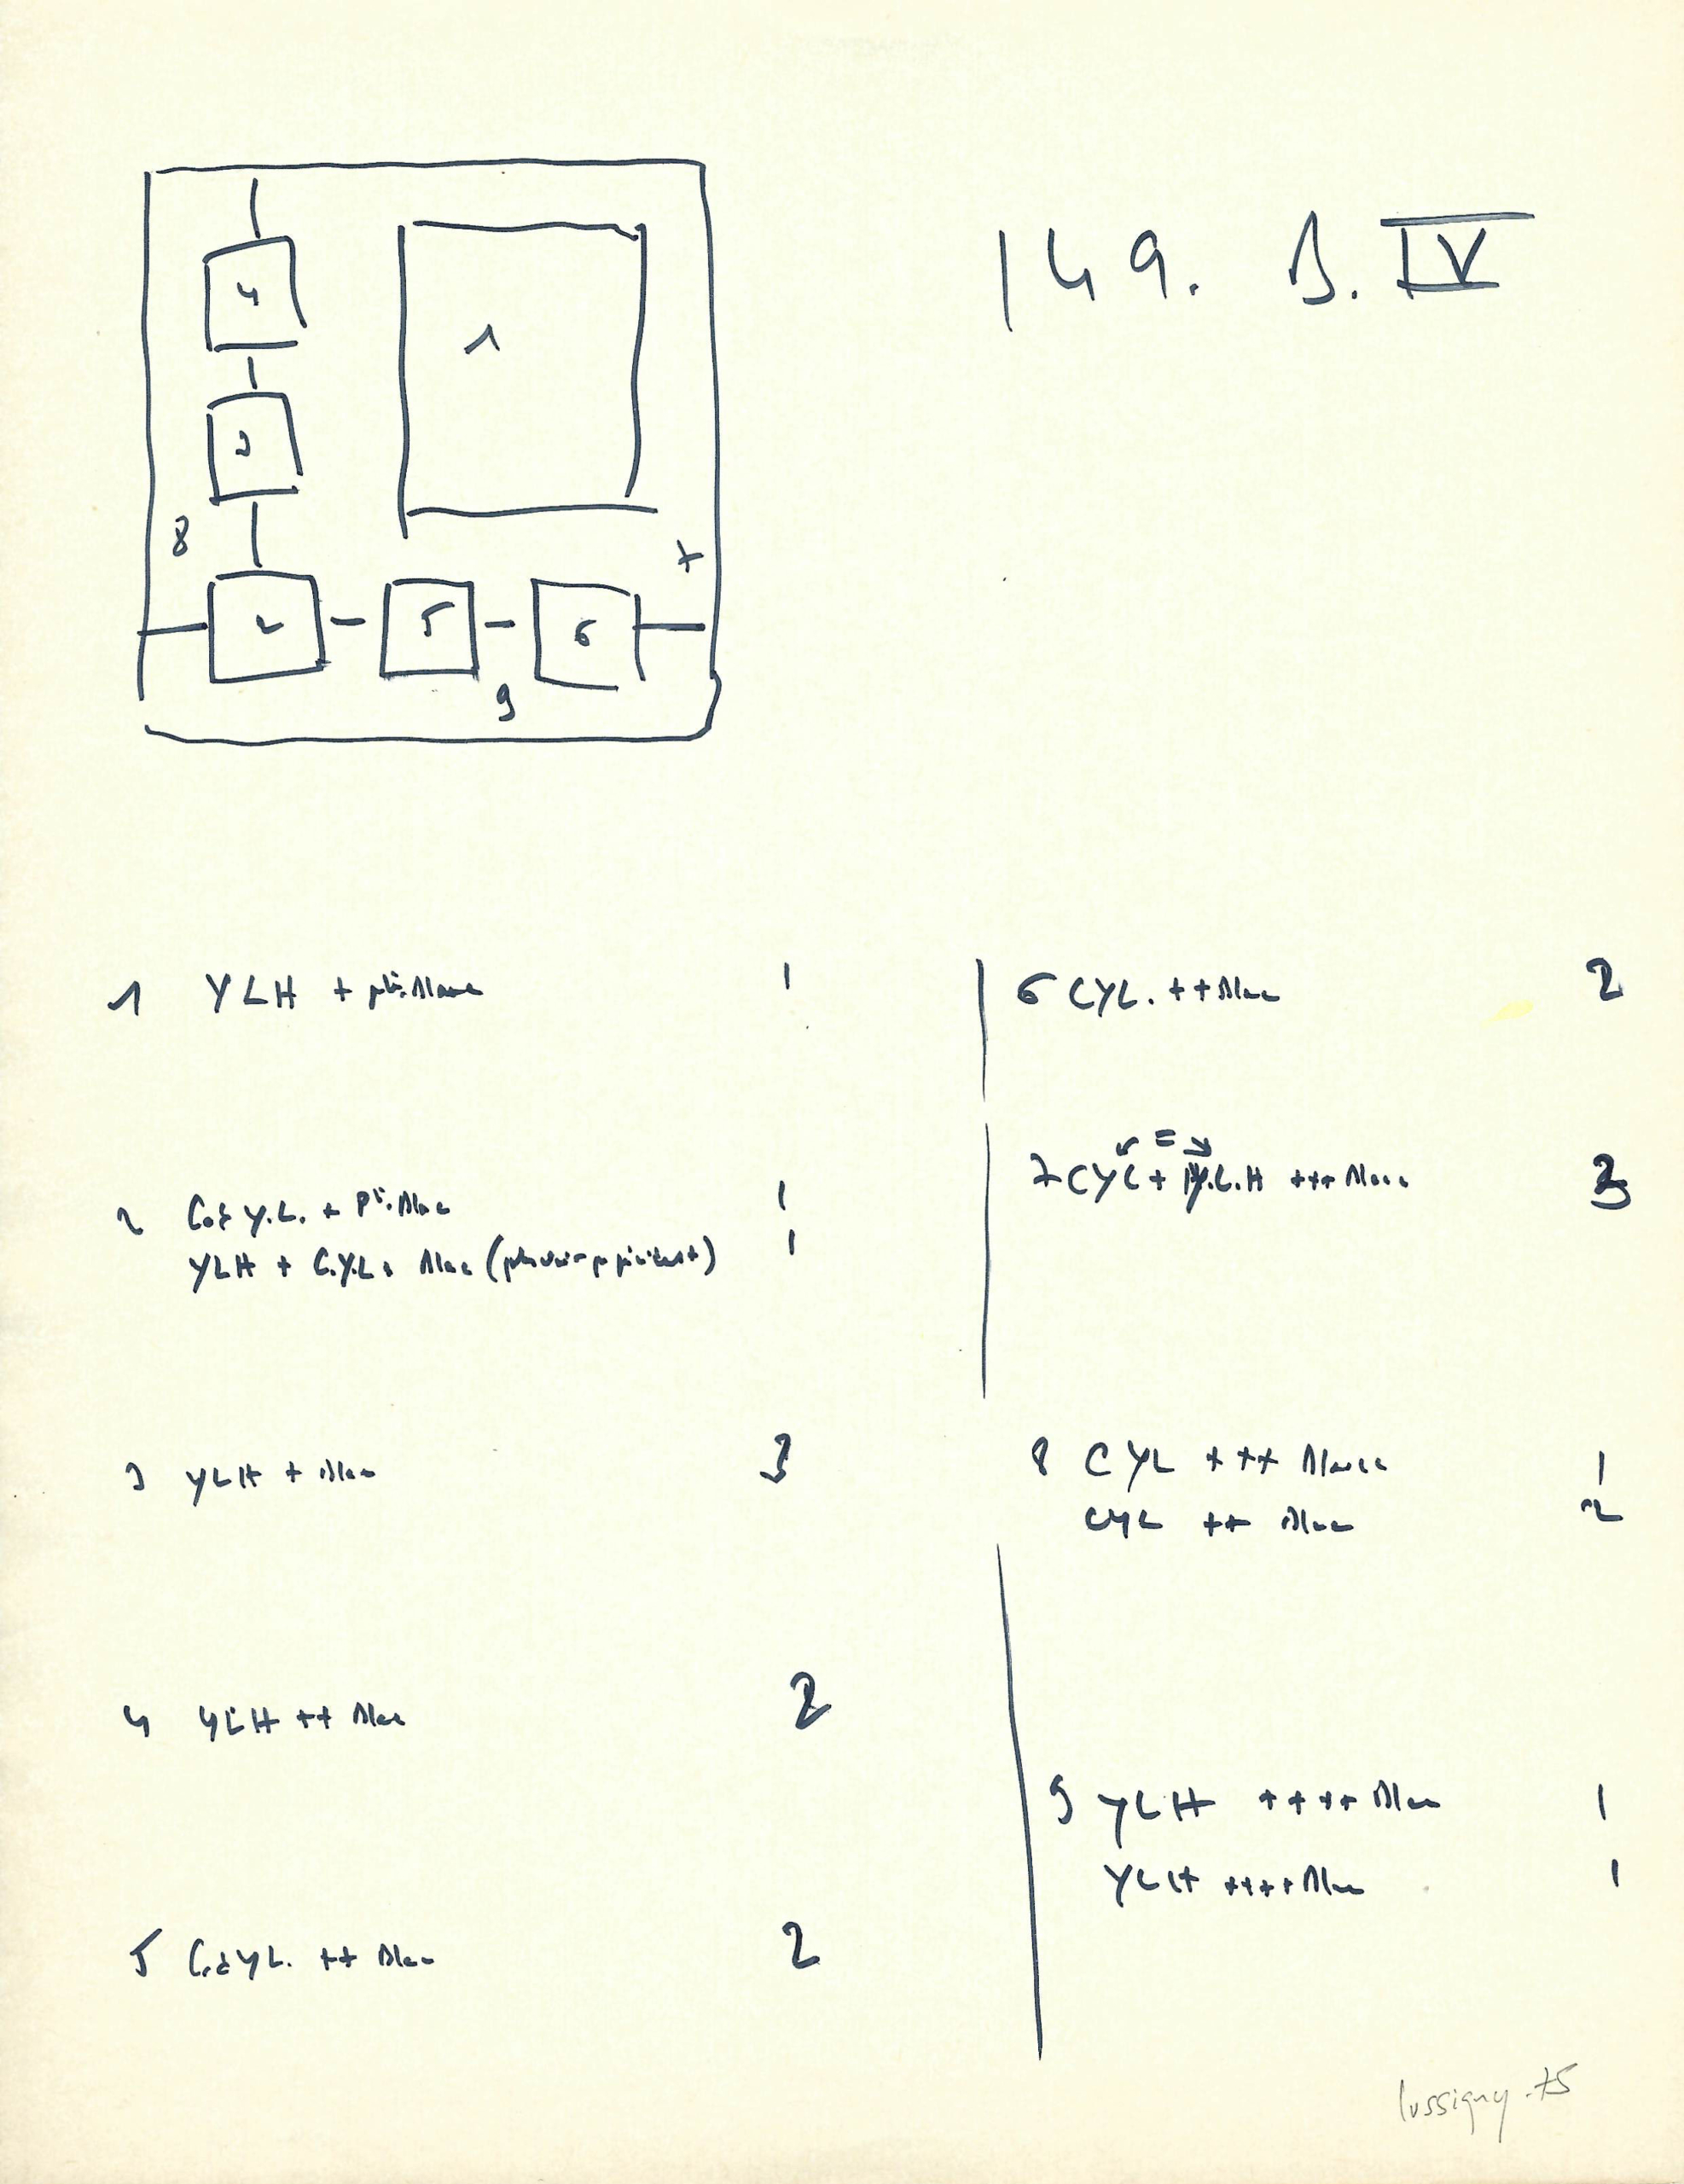 149. B. IV
4
1
3
8
7
2
5
6
9
1 YLH + pte. Blanc 1
2 C.d Y.L. + Pt. Blanc 1
YLH + C.Y.L + Blanc 1
3 YLH + Blanc 3
4 YLH ++ Blanc 2
5 C.d YL. ++ Blanc 2
6 CYL. ++ Blanc 2
=
7 CYL + Y.L.H +++ Blanc 3
8 CYL +++ Blanc 1
CYL ++ Blanc 2
9 YLH ++++ Blanc 1
YLH ++++ Blanc 1
lussigny .75